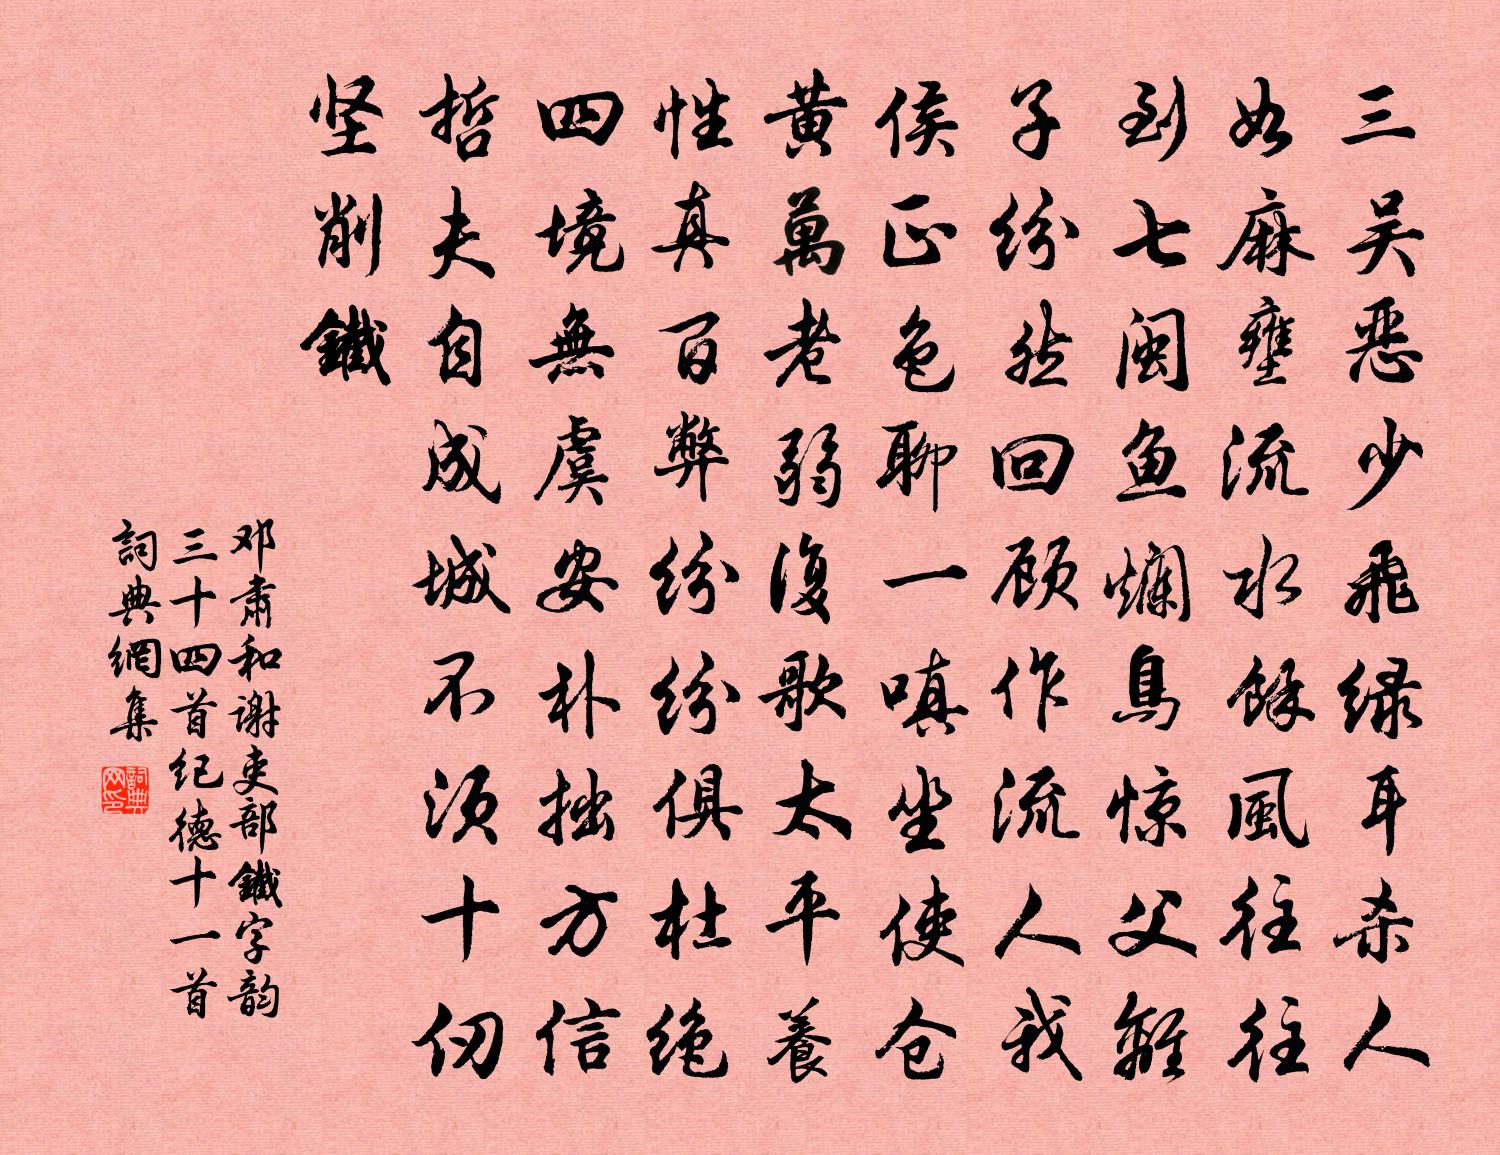 三吴恶少飛绿耳杀人
如麻壅流水餘風往往
到七闽鱼爛鳥惊父離
子纷然回顾作流人我
侯正色聊一嗔坐使仓
黄萬老弱復歌太平養
性真百弊纷纷俱杜绝
四境無虞安朴拙方信
哲夫自成城不须十仞
坚削鐵
邓肃和谢吏部鐵字韵
三十四首纪德十一首
詞典網集
詞典
网印